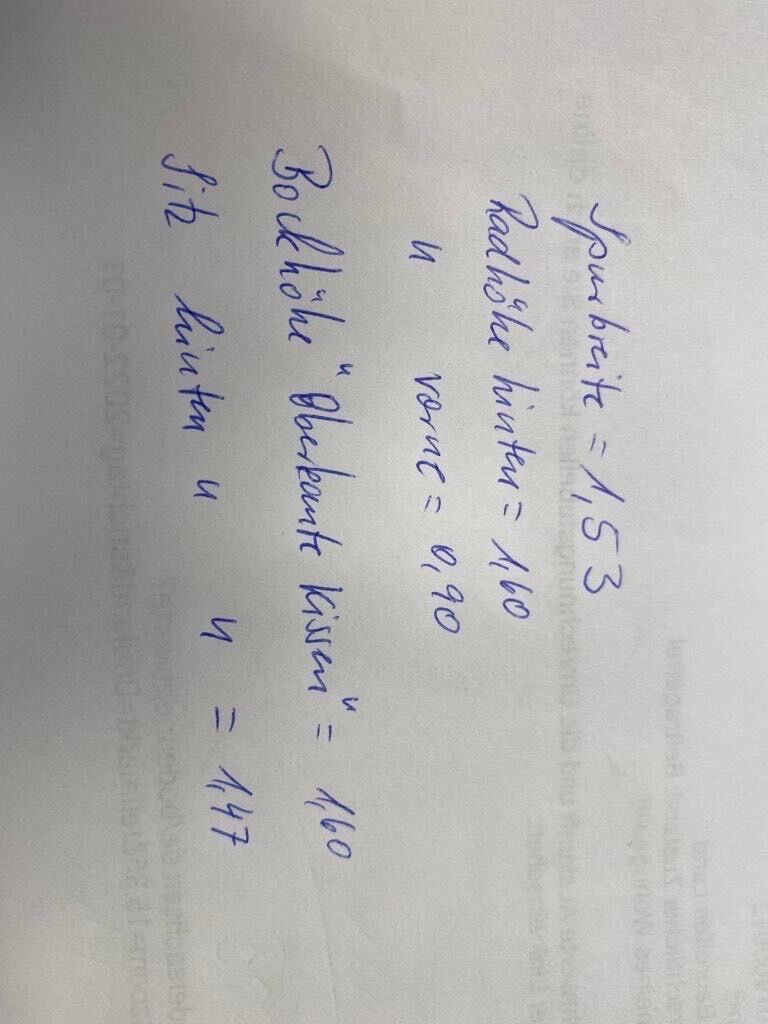 Spurbreite = 1,53
Radhöhe hinten = 1,60
" vorne = 0,90
Bockhöhe "Oberkante Kissen" = 1,60
Sitz hinten " " = 1,47